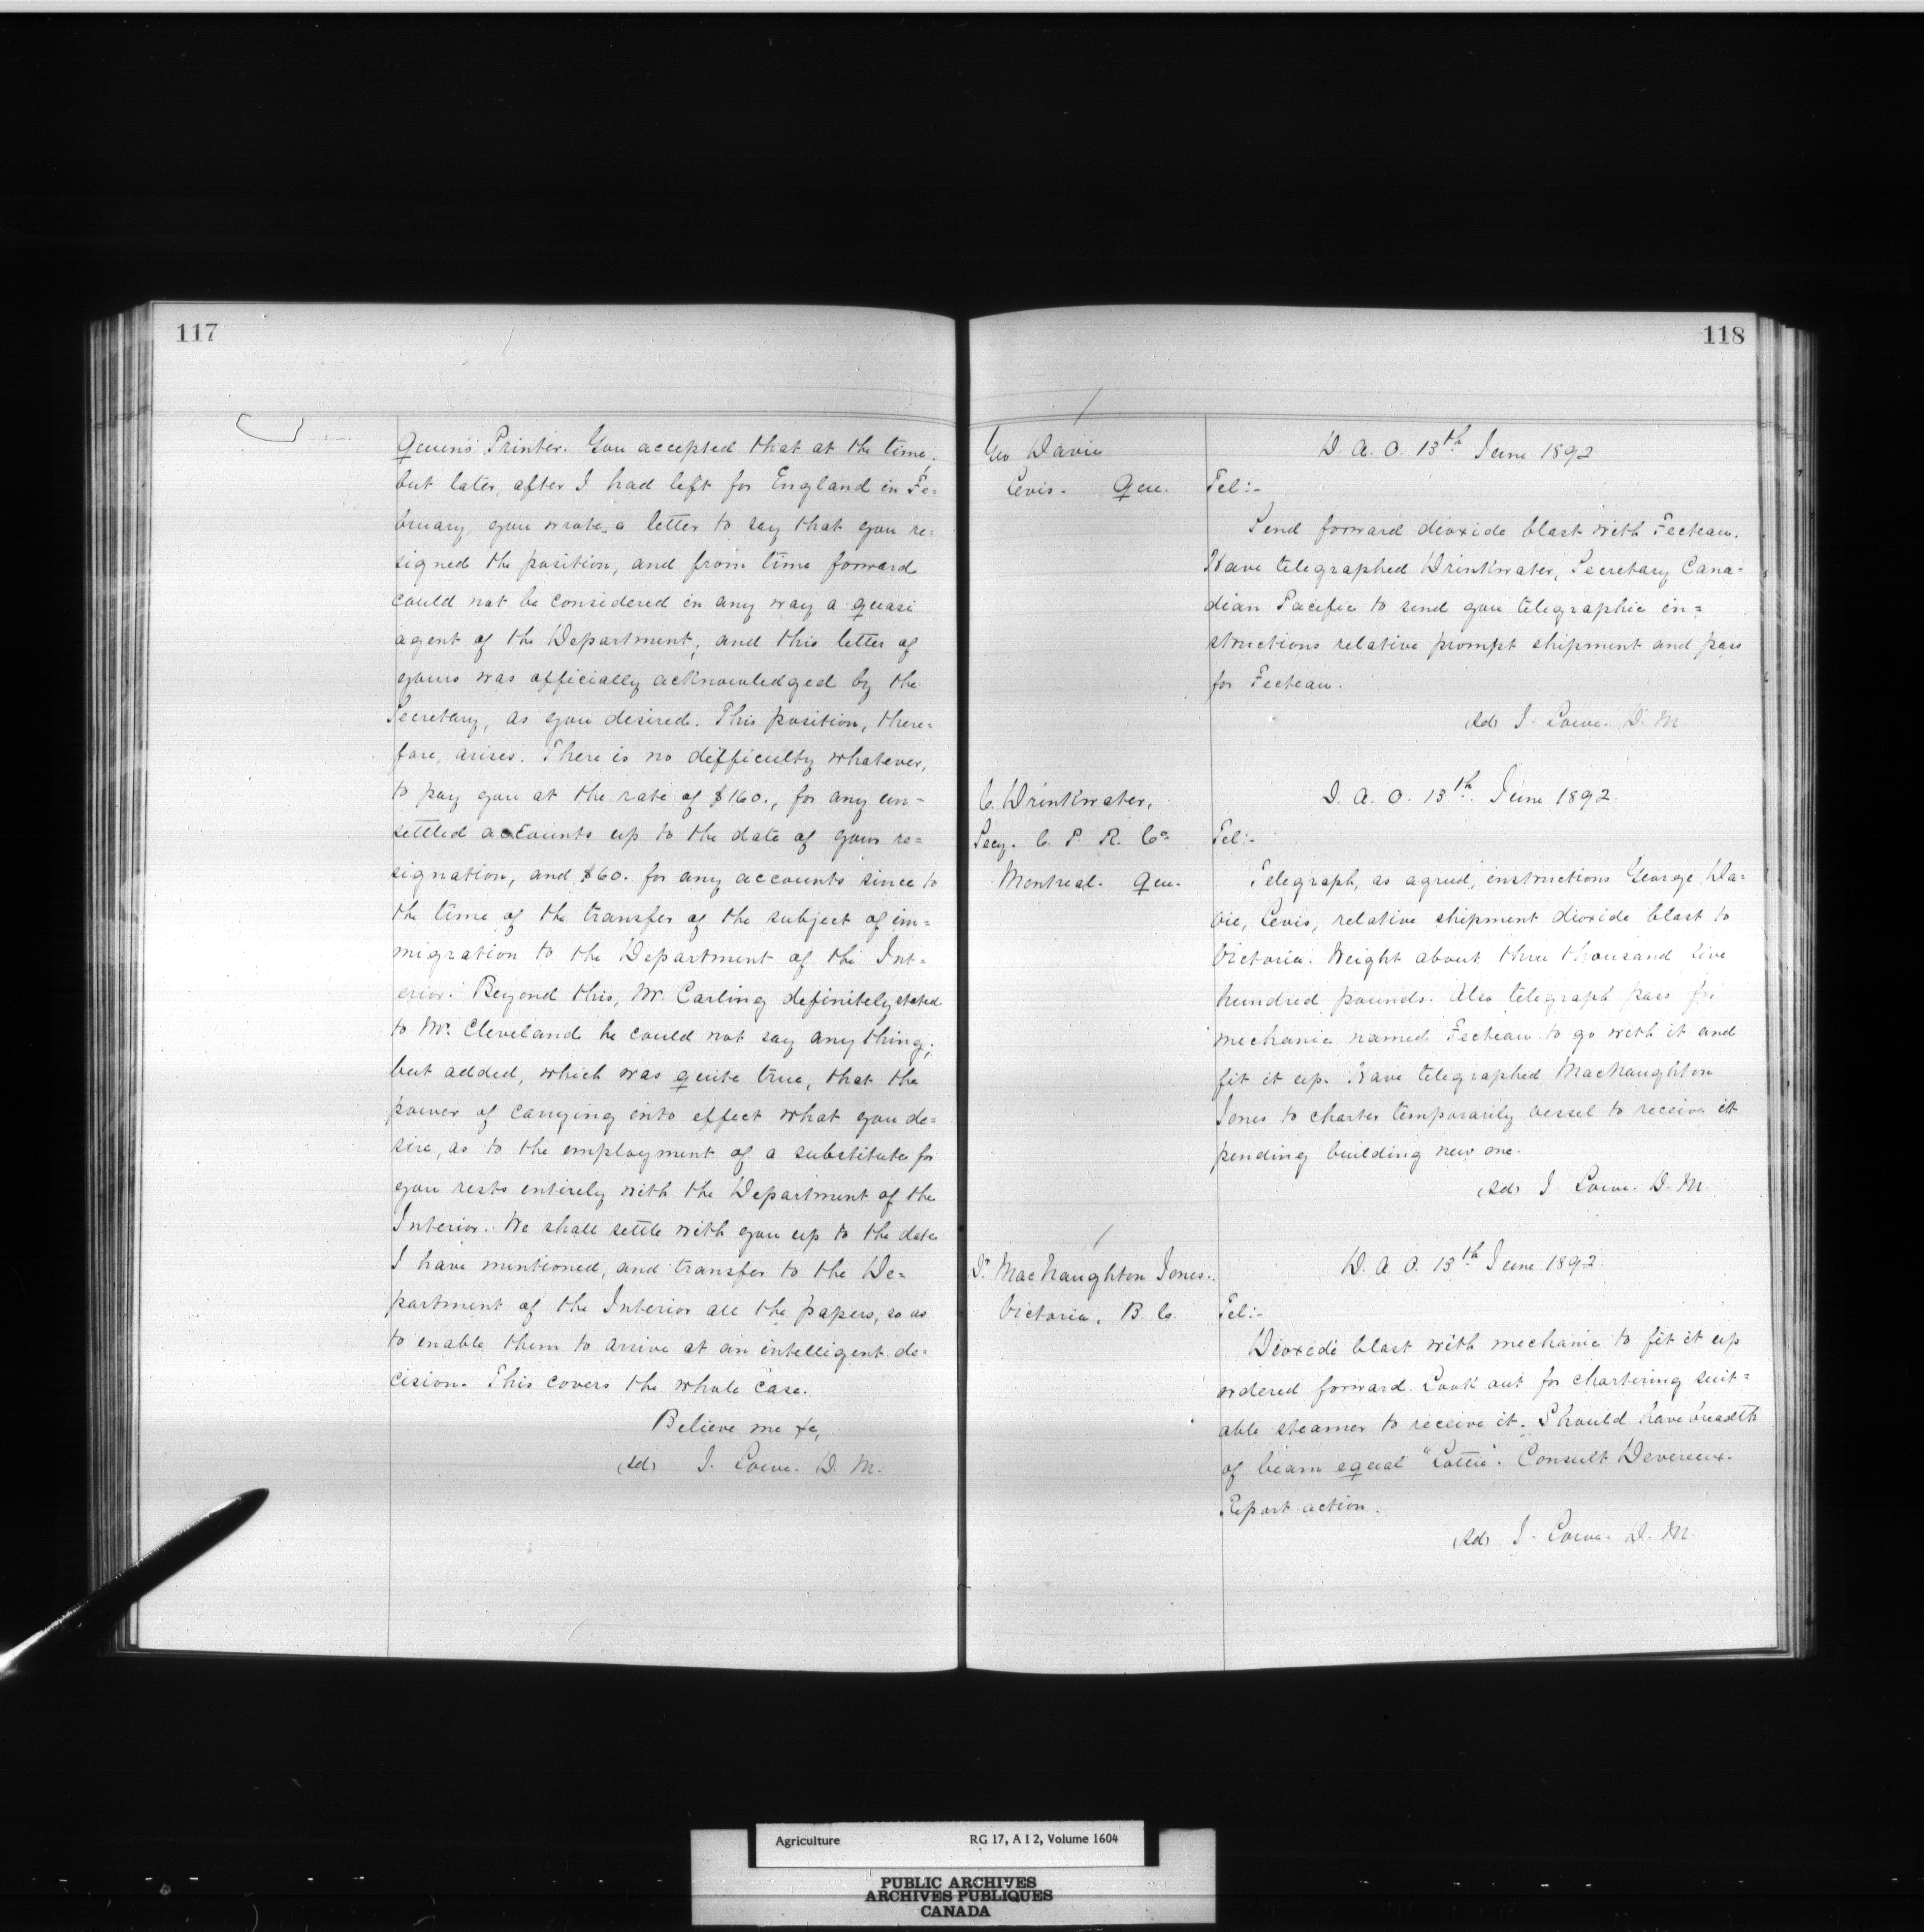 117
Queen's Printer. You accepted that at the time,
but later, after I had left for England in Fe=
bruary, you wrote a letter to say that you re=
signed the position, and from time forward
could not be considered in any way a quasi
agent of the Department; and this letter of
yours was officially acknowledged by the
Secretary, as you desired. This position, there=
fore, arises. There is no difficulty whatever,
to pay you at the rate of $160., for any un=
settled accounts up to the date of your re=
signation, and $60. for any accounts since to
the time of the transfer of the subject of im=
migration to the Department of the Int=
erior. Beyond this, Mr. Carling definitely stated
to Mr. Cleveland he could not say any thing;
but added, which was quite true, that the
power of carrying into effect what you de=
sire, as to the employment of a substitute for
you rests entirely with the Department of the
Interior. We shall settle with you up to the date
I have mentioned, and transfer to the De=
partment of the Interior all the papers, so as
to enable them to arrive at an intelligent de=
cision. This covers the whole case.
Believe me &c,
(sd) J. Lowe. D. M.
118
Geo Davie
Levis. Que.
D. A. O. 13th June 1892
Tel:-
Send forward dioxide blast with Fecteau.
Have telegraphed Drinkwater, Secretary Cana=
dian Pacific to send you telegraphic in=
structions relative prompt shipment and pass
for Fecteau.
(sd) J. Lowe. D. M.
C. Drinkwater,
Secy. C. P. R. Co
Montreal. Que.
D. A. O. 13th June 1892.
Tel:-
Telegraph, as agreed, instructions George Da=
vie, Levis, relative shipment dioxide blast to
Victoria. Weight about three thousand five
hundred pounds. Also telegraph pass for
mechanic named Fecteau to go with it and
fit it up. Have telegraphed MacNaughton
Jones to charter temporarily vessel to receive it
pending building new one.
(sd) J. Lowe. D. M.
Dr MacNaughton Jones.
Victoria, B. C.
D. A. O. 13th June 1892.
Tel:-
Dioxide blast with mechanic to fit it up
ordered forward. Look out for chartering suit=
able steamer to receive it. Should have breadth
of beam equal "Lottie". Consult Devereux.
Report action.
(sd) J. Lowe. D. M.
Agriculture RG 17, A I 2, Volume 1604
PUBLIC ARCHIVES
ARCHIVES PUBLIQUES
CANADA